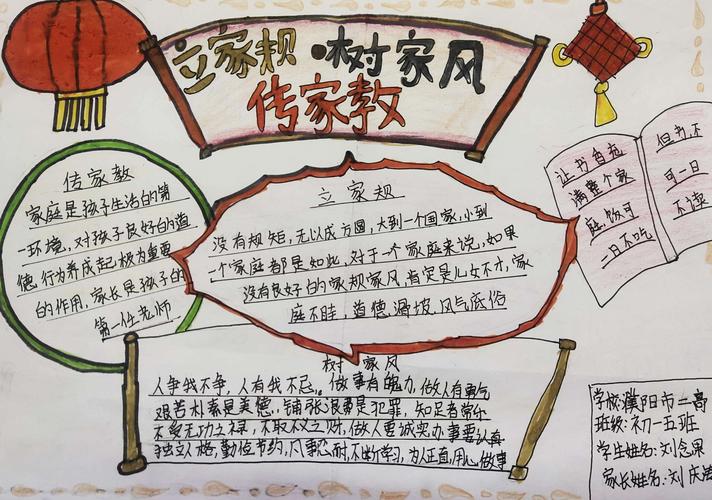 立家规·树家风
传家教
传家教
家庭是孩子生活的第
一环境，对孩子良好的道
德行为养成起极为重要
的作用，家长是孩子的
第一任老师
立家规
没有规矩，无以成方圆，大到一个国家，小到
一个家庭都是如此，对于一个家庭来说，如果
没有良好的家规家风，肯定是儿女不才，家
庭不睦，道德滑坡，风气底俗
让书香充
满整个家
庭，饭可
一日不吃
但书不
可一日
不读
树家风
人争我不争，人有我不忌，做事有魄力，做人有勇气
艰苦朴素是美德，铺张浪费是犯罪，知足者常乐
不受无功之禄，不取不义之财，做人要诚实办事要认真
独立人格，勤俭节约，凡事忍耐，不断学习，为人正直，用心做事
学校：濮阳市一高
班级：初一五班
学生姓名：刘念果
家长姓名：刘庆